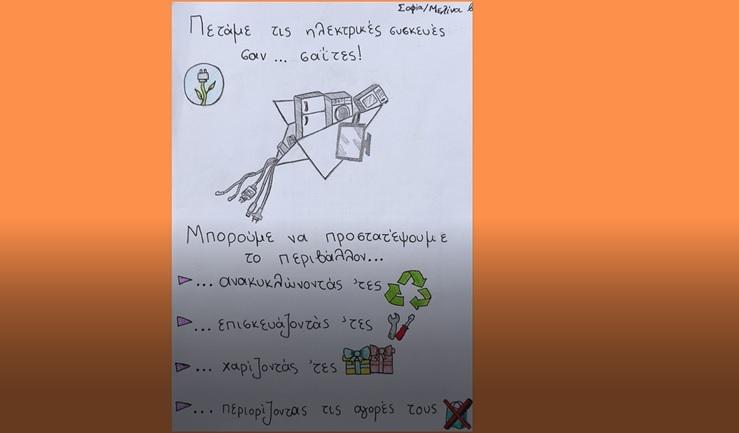 Σοφία/Μελίνα
Πετάμε τις ηλεκτρικές συσκευές
σαν ... σαΐτες!
Μπορούμε να προστατέψουμε
το περιβάλλον...
... ανακυκλώνοντάς 'τες
... επισκευάζοντάς 'τες
... χαρίζοντάς 'τες
... περιορίζοντας τις αγορές τους